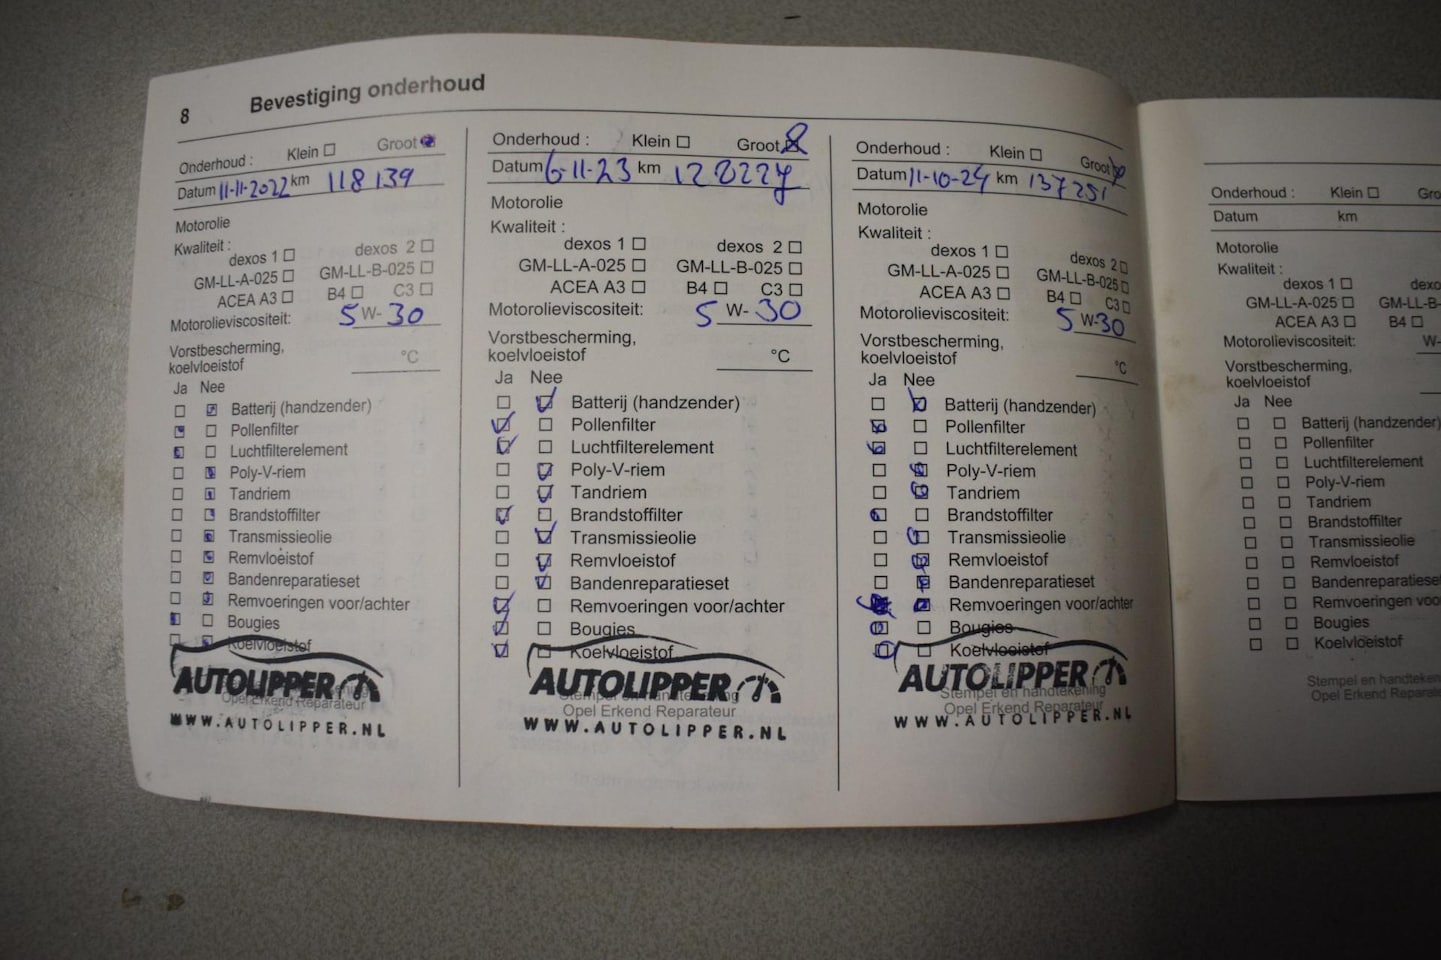 8 Bevestiging onderhoud
Onderhoud : Klein Groot
Datum 11-11-2022 km 118139
Motorolie
Kwaliteit :
dexos 1 dexos 2
GM-LL-A-025 GM-LL-B-025
ACEA A3 B4 C3
Motorolieviscositeit: 5 W- 30
Vorstbescherming,
koelvloeistof °C
Ja Nee
Batterij (handzender)
Pollenfilter
Luchtfilterelement
Poly-V-riem
Tandriem
Brandstoffilter
Transmissieolie
Remvloeistof
Bandenreparatieset
Remvoeringen voor/achter
Bougies
Koelvloeistof
AUTOLIPPER
Opel Erkend Reparateur
WWW.AUTOLIPPER.NL
Onderhoud : Klein Groot
Datum 6-11-23 km
Motorolie
Kwaliteit :
dexos 1 dexos 2
GM-LL-A-025 GM-LL-B-025
ACEA A3 B4 C3
Motorolieviscositeit: 5 W- 30
Vorstbescherming,
koelvloeistof °C
Ja Nee
Batterij (handzender)
Pollenfilter
Luchtfilterelement
Poly-V-riem
Tandriem
Brandstoffilter
Transmissieolie
Remvloeistof
Bandenreparatieset
Remvoeringen voor/achter
Bougies
Koelvloeistof
AUTOLIPPER
Stempel en handtekening
Opel Erkend Reparateur
WWW.AUTOLIPPER.NL
Onderhoud : Klein Groot
Datum 11-10-24 km 137251
Motorolie
Kwaliteit :
dexos 1 dexos 2
GM-LL-A-025 GM-LL-B-025
ACEA A3 B4 C3
Motorolieviscositeit: 5 W- 30
Vorstbescherming,
koelvloeistof °C
Ja Nee
Batterij (handzender)
Pollenfilter
Luchtfilterelement
Poly-V-riem
Tandriem
Brandstoffilter
Transmissieolie
Remvloeistof
Bandenreparatieset
Remvoeringen voor/achter
Bougies
Koelvloeistof
AUTOLIPPER
Stempel en handtekening
Opel Erkend Reparateur
WWW.AUTOLIPPER.NL
Onderhoud : Klein Gro
Datum km
Motorolie
Kwaliteit :
dexos 1 dexo
GM-LL-A-025 GM-LL-B-
ACEA A3 B4
Motorolieviscositeit: W-
Vorstbescherming,
koelvloeistof
Ja Nee
Batterij (handzender)
Pollenfilter
Luchtfilterelement
Poly-V-riem
Tandriem
Brandstoffilter
Transmissieolie
Remvloeistof
Bandenreparatieset
Remvoeringen voo
Bougies
Koelvloeistof
Stempel en handteken
Opel Erkend Reparate